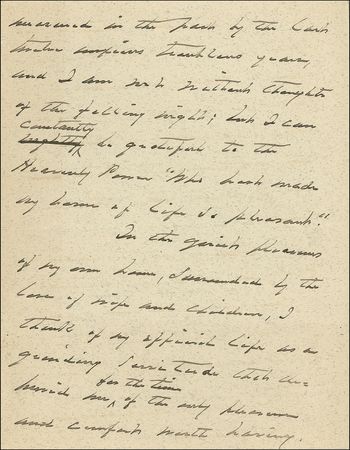 measured in the past by the last
twelve anxious troublous years,
and I am not without thoughts
of the falling night; but I can
constantly
nightly be grateful to the
Heavenly Power "Who hast made
my home of life so pleasant."
In the quiet pleasures
of my own home, surrounded by the
love of wife and children, I
think of my official life as a
grinding servitude that de-
for the time
prived me, of the only pleasures
and comforts worth having.